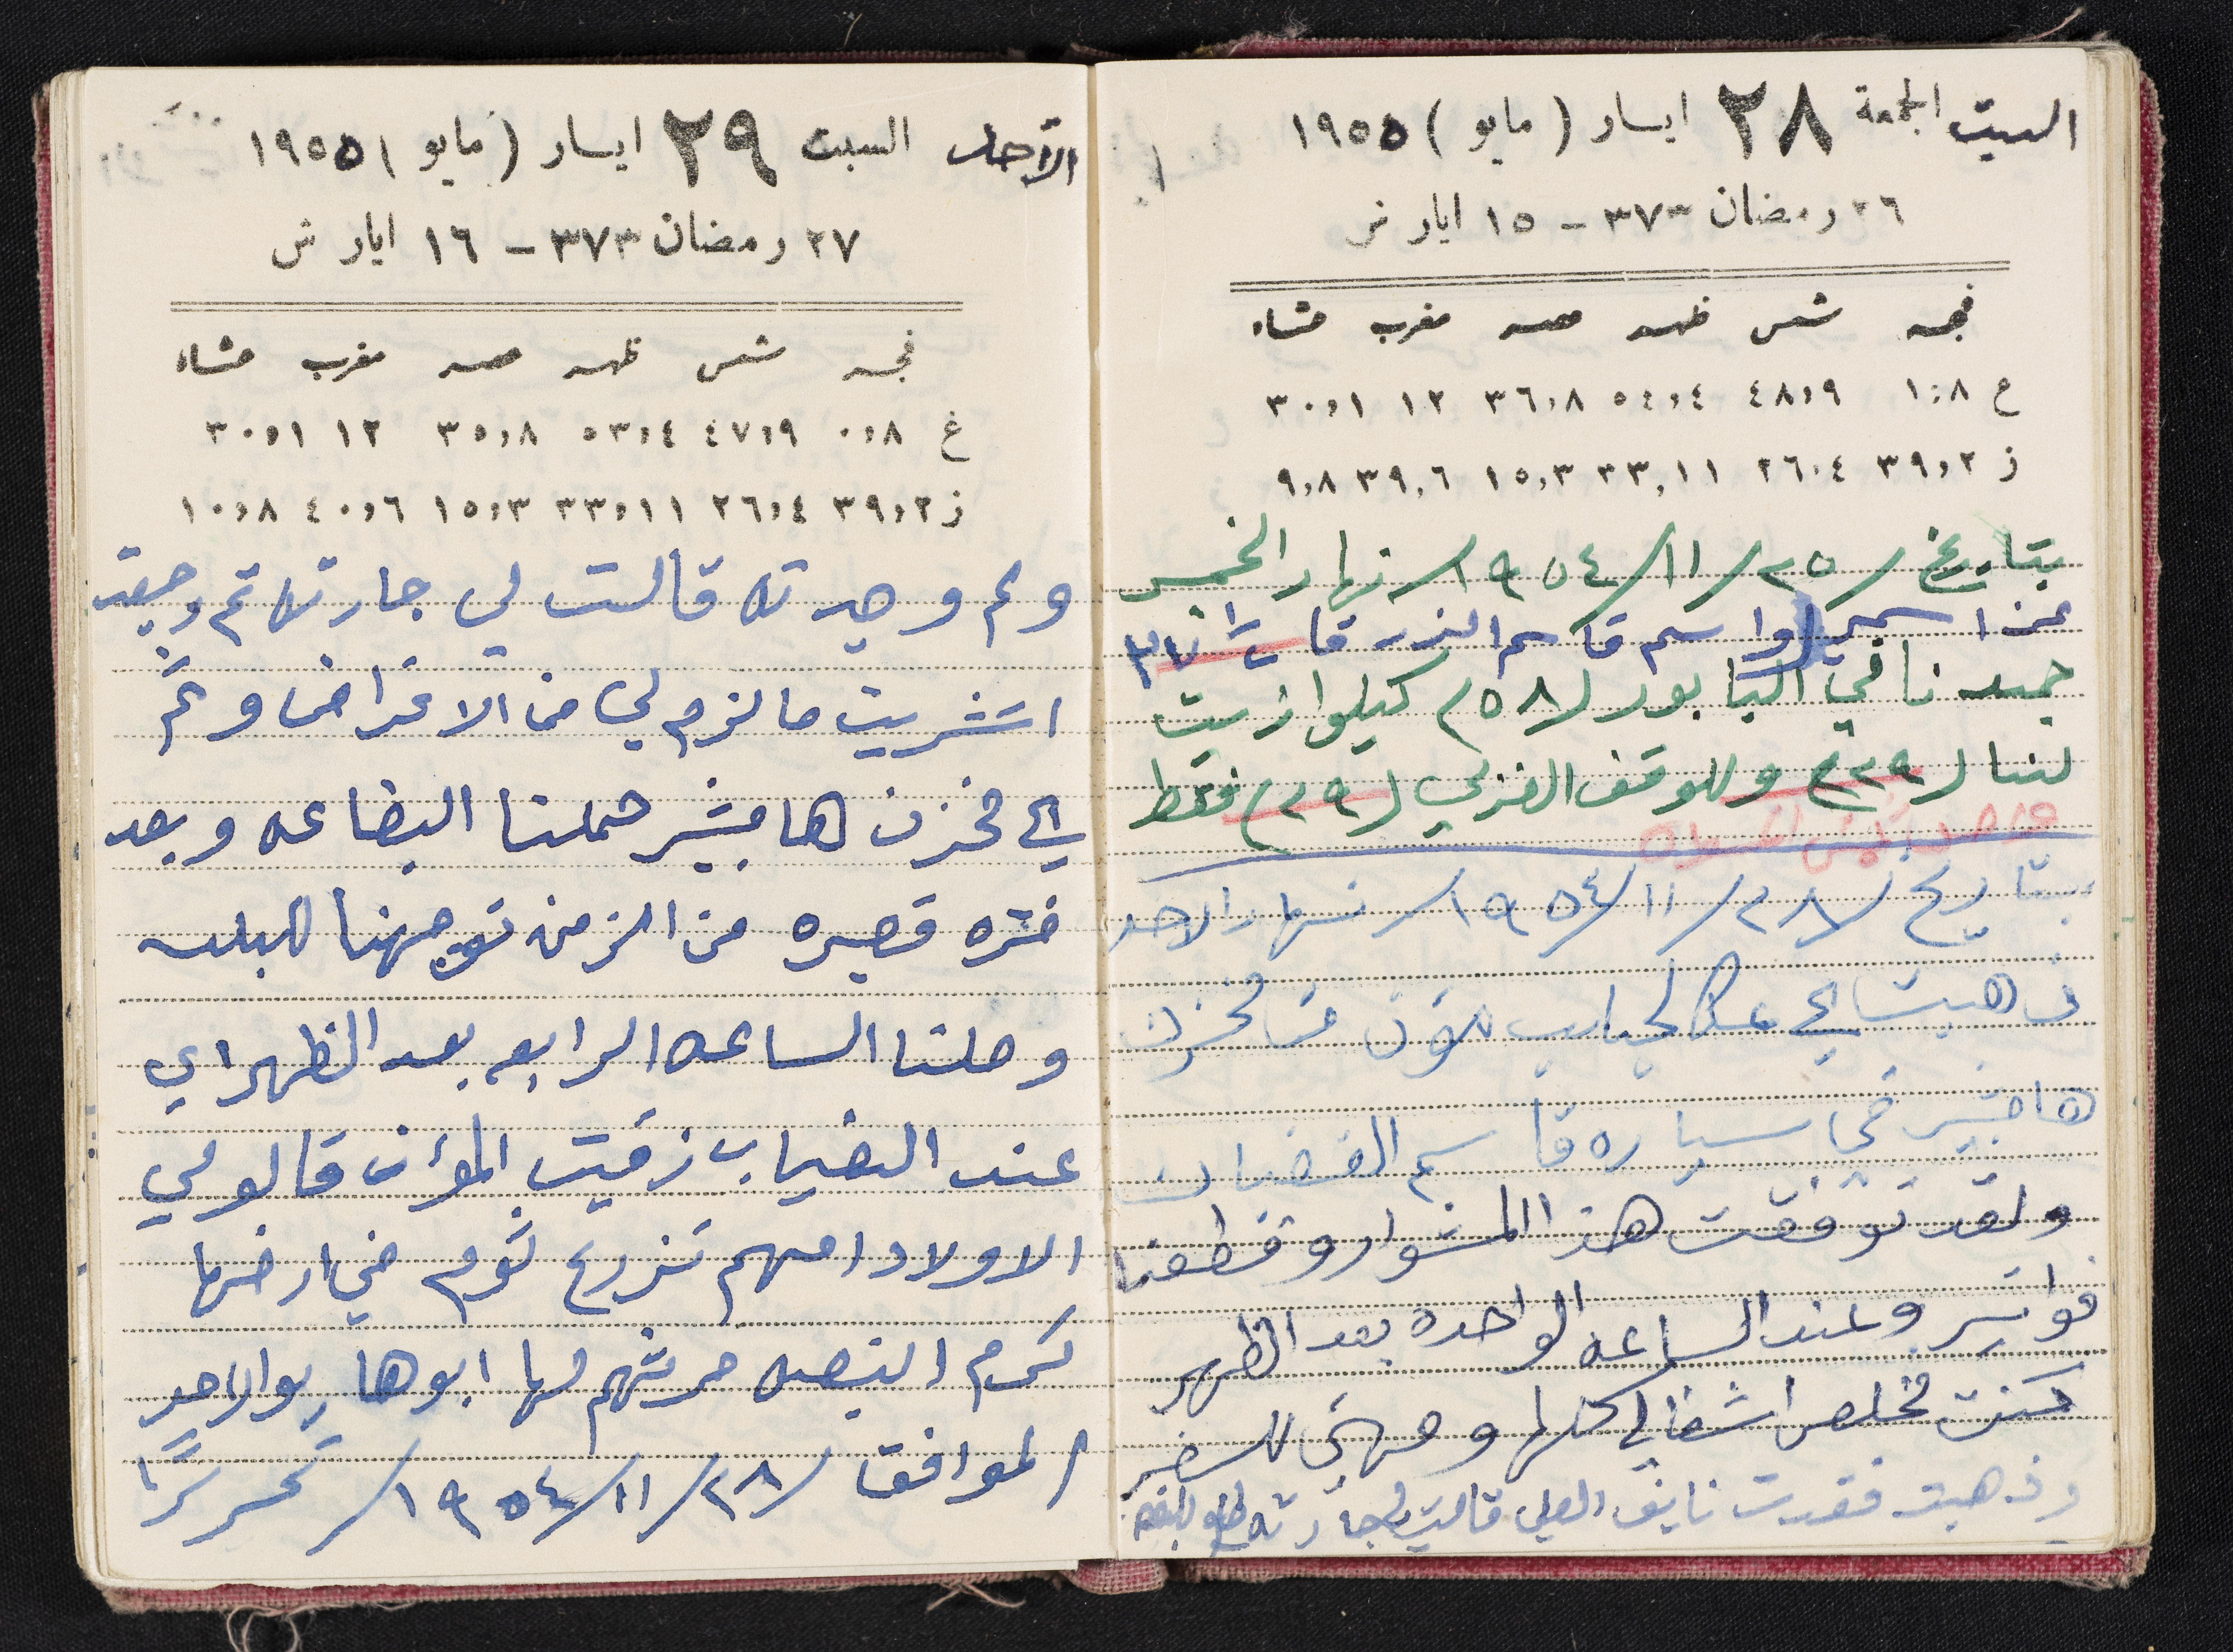 السبت الجمعة ٢٨ ايار (مايو) ١٩٥٥
٢٦ رمضان ٣٧٣ - ١٥ ايار ش
فجر شمس ظهر عصر مغرب عشاء
ع ١:٨ ٤٨,٩ ٥٤,٤ ٣٦,٨ ١٢ ٣٠,١
ز ٣٩,٢ ٢٦,٤ ٣٣,١١ ١٥,٣ ٣٩,٦ ٩,٨
بتاريخ /٢٥/١١/١٩٥٤/ نهار الخميس
عن اسمي واسم قاسم
جبدنا في البابور (٥٨) كيلو ازيت
لنا (٢٩) وللوقف الغزلي (٢٩) فقط
بتاريخ /٢٨/١١/١٩٥٤/ نهار الاحد
ذهبت الى عكا لجياب المؤن من مخزن
هامشبير في سيارة قاسم الغضبان
ولقد توفقت هذا المشوار وقطعنا
فواتير وعند الساعه الواحده بعد الظهر
كنت مخلص اشغالي كلها ومهيئ للسفر
وذهبت فقدت نايف العلي قالت لي جارته
الاحد السبت ٢٩ ايار (مايو) ١٩٥٥
٢٧ رمضان ٣٧٣ - ١٦ ايار ش
فجر شمس ظهر عصر مغرب عشاء
غ ٠,٨ ٤٧,٩ ٥٣,٤ ٣٥,٨ ١٢ ٣٠,١
ز ٣٩,٢ ٢٦,٤ ٣٣,١١ ١٥,٣ ٤٠,٦ ١٠,٨
ولم وجدته قالت لي جارته ثم رجعت
اشتريت ما لزم لي من الاغراض وثم
الى مخزن هامشبير حملنا البضاعه وبعد
فتره قصيره من الزمن توجهنا للبلد
وصلنا الساعه الرابعه بعد الظهر اي
عند الغياب زقيت المؤن قالو لي
الاولاد امهم تزرع ثوم في ارضها
كرم النصبه حرثهم لها ابوها يو الاحد
الموافق /٢٨/١١/١٩٥٤/ تحريرًا